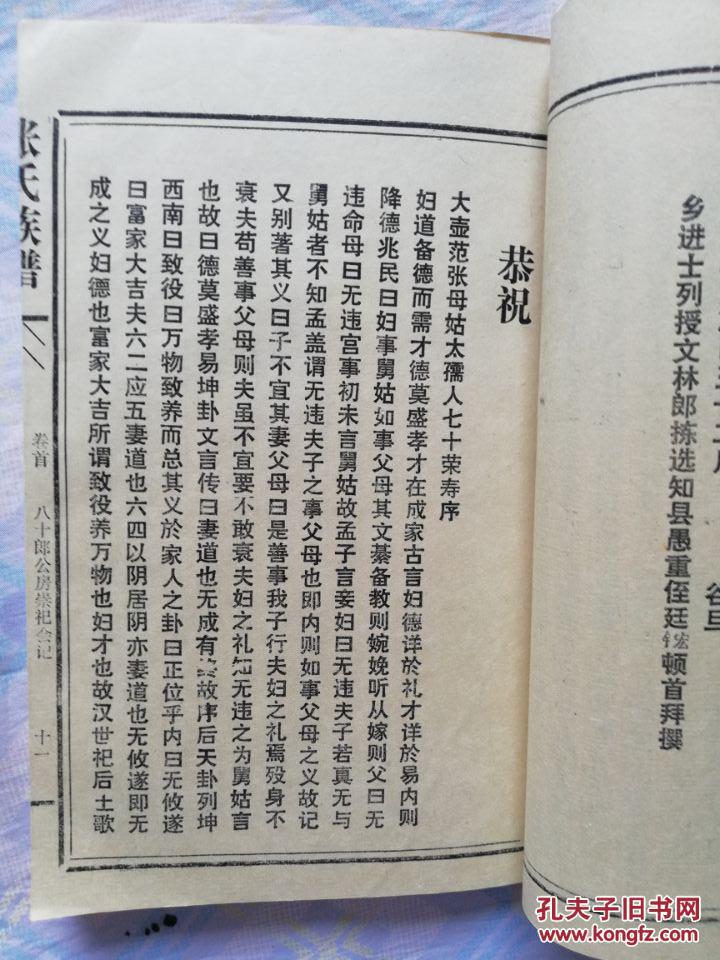 乡进士列授文林郎拣选知县愚重侄廷宏锌顿首拜撰
谷旦
恭祝
大壶范张母姑太孺人七十荣寿序
妇道备德而需才德莫盛孝才在成家古言妇德详於礼才详於易内则
降德兆民曰妇事舅姑如事父母其文綦备教则婉娩听从嫁则父曰无
违命母曰无违宫事初未言舅姑故孟子言妾妇曰无违夫子若真无与
舅姑者不知孟盖谓无违夫子之事父母也即内则如事父母之义故记
又别著其义曰子不宜其妻父母曰是善事我子行夫妇之礼焉殁身不
衰夫苟善事父母则夫虽不宜要不敢衰夫妇之礼知无违之为舅姑言
也故曰德莫盛孝易坤卦文言传曰妻道也无成有终故序后天卦列坤
西南曰致役曰万物致养而总其义於家人之卦曰正位乎内曰无攸遂
曰富家大吉夫六二应五妻道也六四以阴居阴亦妻道也无攸遂即无
成之义妇德也富家大吉所谓致役养万物也妇才也故汉世祀后土歌
张氏族谱
卷首 八十郎公房崇祀会记 十一
孔夫子旧书网
www.kongfz.com